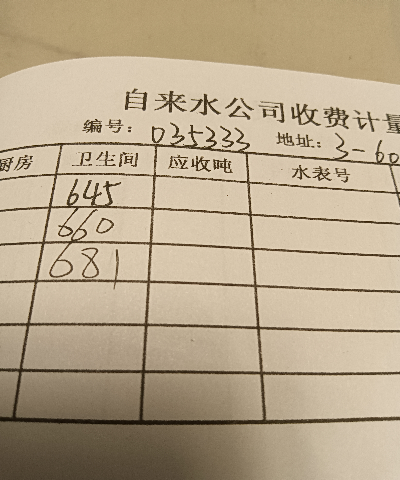 自来水公司收费计量
编号: 035333 地址: 3-60
厨房 卫生间 应收吨 水表号
645
660
681